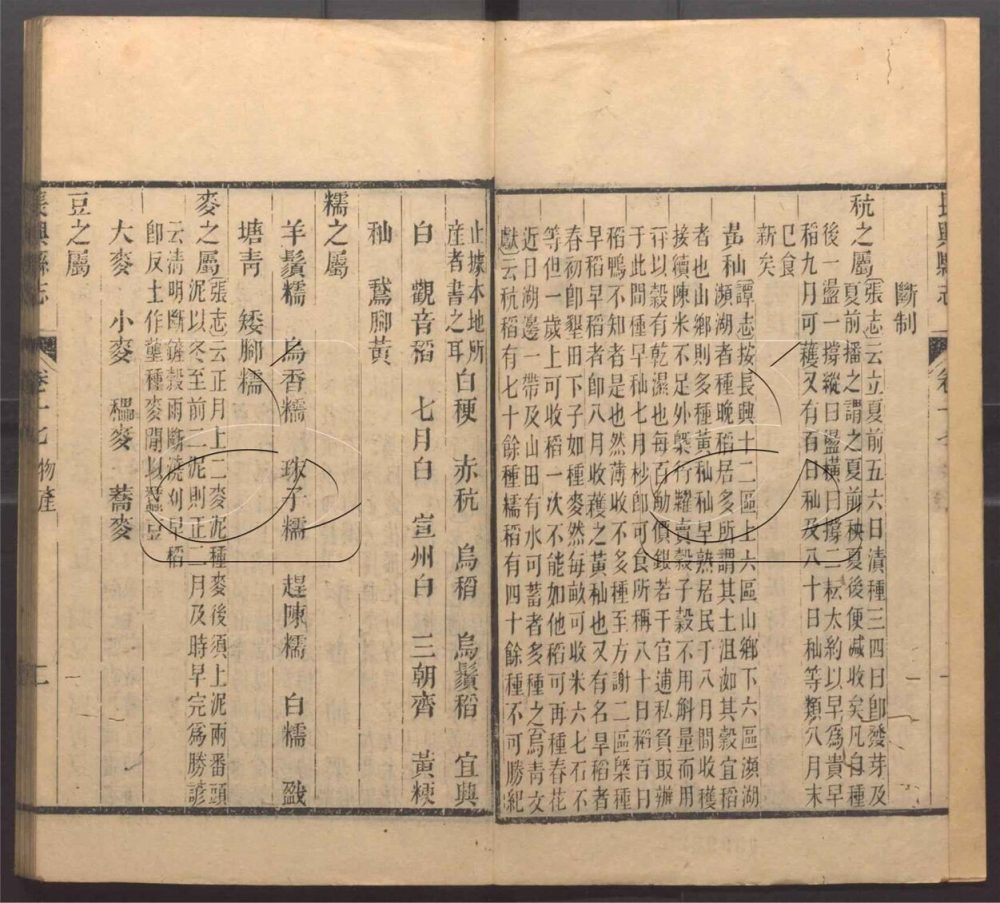 長興縣志 卷十七
斷制
秔之屬 張志云立夏前五六日漬種三四日卽發芽及
夏前播之謂之夏前秧夏後便減收矣凡自種
後一盪一撐縱曰盪橫曰撐二耘大約以早為貴早
稻九月可穫又有百日秈及八十日秈等類八月末
巳食
新矣
黃秈 譚志按長興十二區上六區山鄉下六區瀕湖
瀕湖者種晚稻居多所謂其土沮洳其穀宜稻
者也山鄉則多種黃秈秈早熟居民于八月間收穫
接續陳米不足外槩行糶賣穀子穀不用斛量而用
秤以穀有乾濕也每百觔價銀若干官逋私負取辦
于此間種早秈七月杪卽可食所稱八十日稻百日
稻鴨不知者是也然薄收不多種至方謝二區槩種
早稻早稻者卽八月收穫之黃秈也又有名旱稻者
春初卽墾田下子如種麥然每畝可收米六七石不
等但一歲上可收稻一次不能如他稻可再種春花
近日湖邊一帶及山田有水可蓄者多種之烏青文
獻云秔稻有七十餘種糯稻有四十餘種不可勝紀
止據本地所
產者書之耳 白稉 赤秔 烏稻 烏鬚稻 宜興
白 觀音稻 七月白 宣州白 三朝齊 黃粳
秈 鵞腳黃
糯之屬
羊鬚糯 烏香糯 珠子糯 趕陳糯 白糯
塘青 矮腳糯
麥之屬 張志云正月上二麥泥種麥後須上泥兩番頭
泥以冬至前二泥則正二月及時早完為勝諺
云清明斷雪穀雨斷霜刈早稻
卽反土作壟種麥間以蠶豆
大麥 小麥 穬麥 蕎麥
豆之屬
長興縣志 卷十七 物產 二